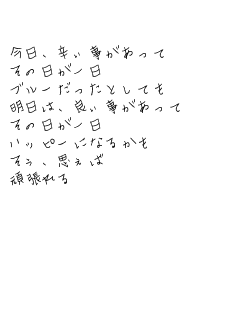 今日、辛い事があって
その日が一日
ブルーだったとしても
明日は、良い事があって
その日が一日
ハッピーになるかも
そう、思えば
頑張れる